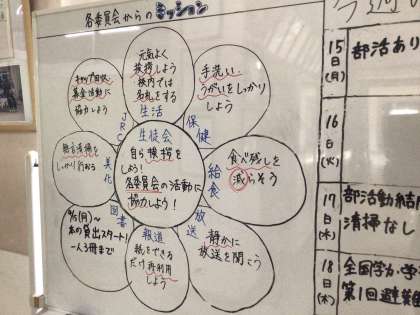 各委員会からのミッション
元気よく
挨拶しよう
校内では
名札をする
生活
手洗い
うがいをしっかり
しよう
保健
食べ残しを
減らそう
給食
静かに
放送を聞こう
放送
紙をできる
だけ再利用
しよう
報道
(月)~
本の貸出スタート!
一人3冊まで
図書
無言清掃を
しっかり行おう
美化
募金活動に
協力しよう
JRC
生徒会
自ら挨拶を
しよう!
各委員会の活動に
協力しよう!
15日(月)
部活あり
16日(火)
17日(水)
部活動結
清掃なし
18日(木)
全国学力・学
第1回避難